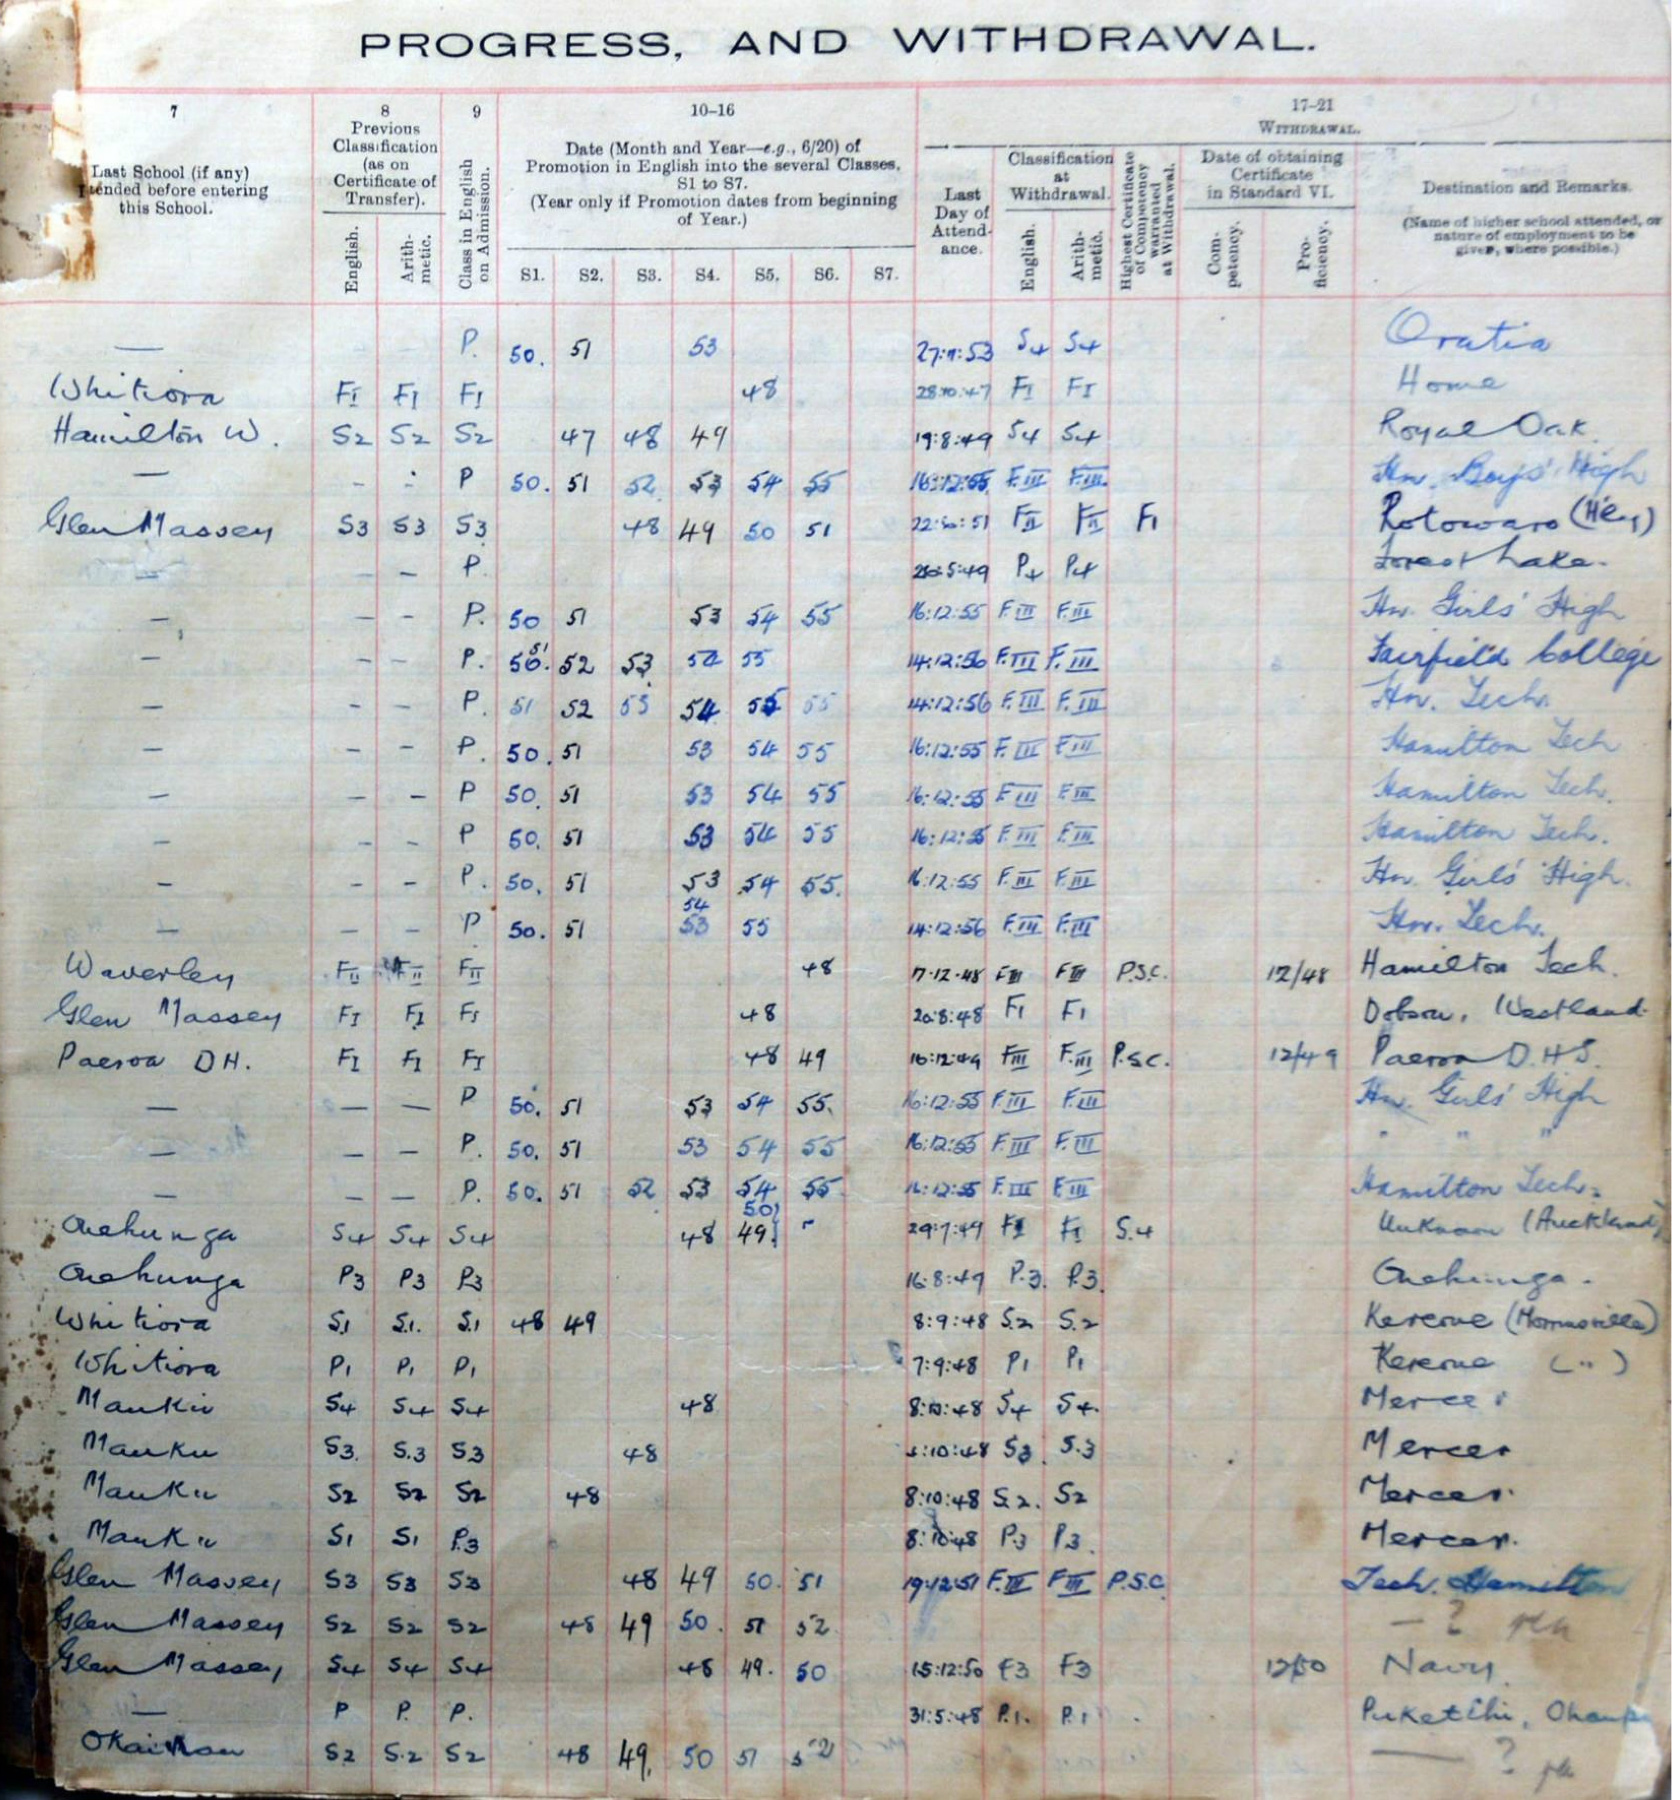 PROGRESS, AND WITHDRAWAL.
7 8 9 10–16 17–21
Last School (if any) tended before entering this School.
Previous Classification (as on Certificate of Transfer).
English. Arithmetic.
Class in English on Admission.
Date (Month and Year—e.g., 6/20) of Promotion in English into the several Classes, S1 to S7.
(Year only if Promotion dates from beginning of Year.)
S1. S2. S3. S4. S5. S6. S7.
WITHDRAWAL.
Last Day of Attendance.
Classification at Withdrawal.
English. Arithmetic.
Highest Certificate of Competency warranted at Withdrawal.
Date of obtaining Certificate in Standard VI.
Competency. Proficiency.
Destination and Remarks.
(Name of higher school attended, or nature of employment to be given, where possible.)
— P. 50. 51 53 S4 S4 Oratia
Whitiora FI FI FI 48 28:10:47 FI FI Home
Hamilton W. S2 S2 S2 47 48 49 19:8:49 S4 S4 Royal Oak.
— – – P 50. 51 52 53 54 55 16:12:55 F.III F.III Hn. Boys' High
Glen Massey S3 S3 S3 48 49 50 51 FII FII F1 Rotowaro (Hly)
— – – P. P4 P4 Forest Lake.
— – – P. 50 51 53 54 55 16:12:55 F.III F.III Hn. Girls' High
— – – P. 50. 51 52 53. 54 55 14:12:56 F.III F.III Fairfield College
— – – P. 51 52 53 54 55 55 14:12:56 F.III F.III Hn. Tech.
— – – P. 50. 51 53 54 55 16:12:55 F.III F.III Hamilton Tech
— – – P 50. 51 53 54 55 16:12:55 F.III F.III Hamilton Tech.
— – – P 50. 51 53 54 55 16:12:55 F.III F.III Hamilton Tech.
— – – P. 50. 51 53 54 55. 16:12:55 F.III F.III Hn. Girls' High.
— – – P 50. 51 54 53 55 14:12:56 F.III F.III Hn. Tech.
Waverley FII FII FII 48 17-12-48 FIII FIII P.S.C. 12/48 Hamilton Tech.
Glen Massey FI FI FI 48 20:8:48 F1 F1 Dobson, Westland.
Paeroa DH. FI FI FI 48 49 16:12:49 FIII F.III P.S.C. 12/49 Paeroa D.H.S.
— — — P 50. 51 53 54 55. 16:12:55 F.III F.III Hn. Girls' High
— – – P. 50. 51 53 54 55 16:12:55 F.III F.III " " "
— – – P. 50. 51 52 53 54 55 16:12:55 F.III F.III Hamilton Tech.
Onehunga S4 S4 S4 48 49 50 29:7:49 FI FI S.4 Unknown (Auckland)
Onehunga P3 P3 P3 16:8:49 P.3. P.3. Onehunga.
Whitiora S1 S.1. S.1 48 49 8:9:48 S.2 S.2 Kereone (Morrinsville)
Whitiora P1 P1 P1 7:9:48 P1 P1 Kereone ( " )
Mauku S4 S4 S4 48 8:10:48 S4 S4. Mercer
Mauku S3. S.3 S3 48 :10:48 S3. S.3 Mercer
Mauku S2 S2 S2 48 8:10:48 S.2. S2 Mercer.
Mauku S1 S1 P.3 8:10:48 P.3 P3. Mercer.
Glen Massey S3 S3 S3 48 49 50. 51 19:12:51 F.III FIII P.S.C. Tech. Hamilton
Glen Massey S2 S2 S2 48 49 50. 51 52 — ?
Glen Massey S4 S4 S4 48 49. 50 15:12:50 F3 F3 12/50 Navy.
— P P. P. 31:5:48 P.1. P.1
S2 S.2 S2 48 49. 50 51 52 — ?